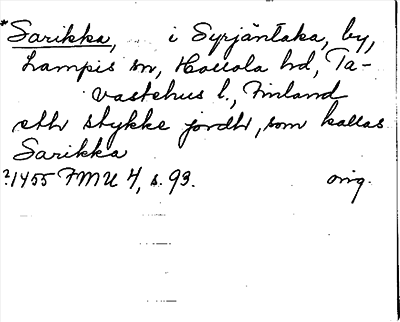 *Sarikka, i Syrjäntaka, by,
Lampis sn, Hollola hd, Ta-
vastehus l., Finland
etth stykke jordh, som kallas
Sarikka
?1455 FMU 4, s. 93. orig.